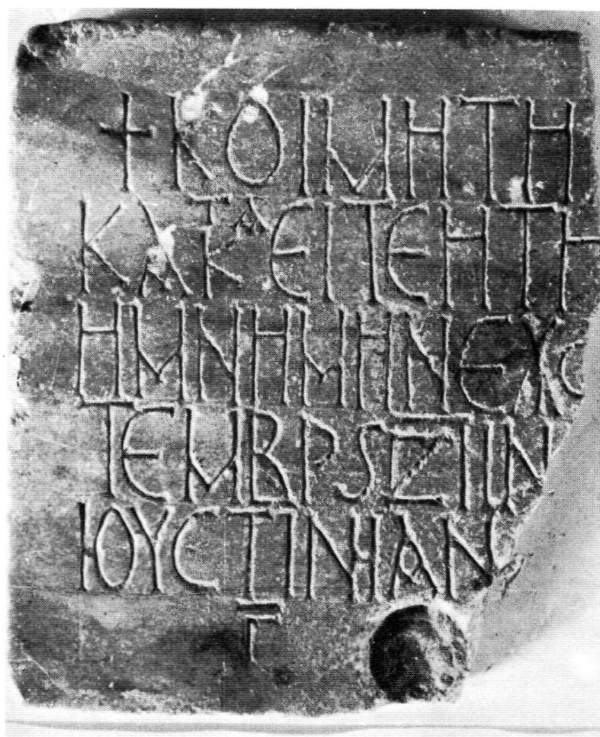 + ΚΟΙΜΗΤΗ
ΚΑΤΑΚΕΙΤΕΗΤΗ
ΗΜΝΗΜΗΝΕΧC
ΤΕΜΒΡSΖΙΝ
ΙΟΥCΤΙΝΙΑΝ
Γ